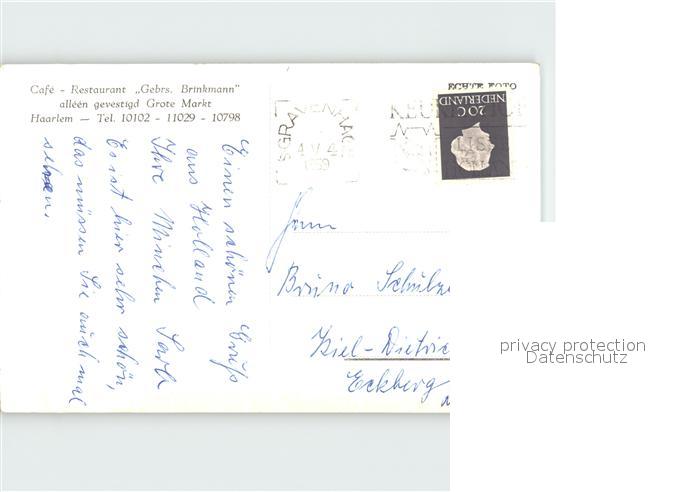 Café - Restaurant „Gebrs. Brinkmann"
alléén gevestigd Grote Markt
Haarlem — Tel. 10102 - 11029 - 10798
ECHTE FOTO
'SGRAVENHAGE
4.V
1959
KEUKENHOF
LIS
NEDERLAND
20 C
Einen schönen Gruß
aus Holland
Ihre Minchen Sarh
Es ist hier sehr schön,
das müssen Sie auch mal
sehen.
Herrn
Bruno Schulze
Kiel-Dietric
Eckberg
privacy protection
Datenschutz